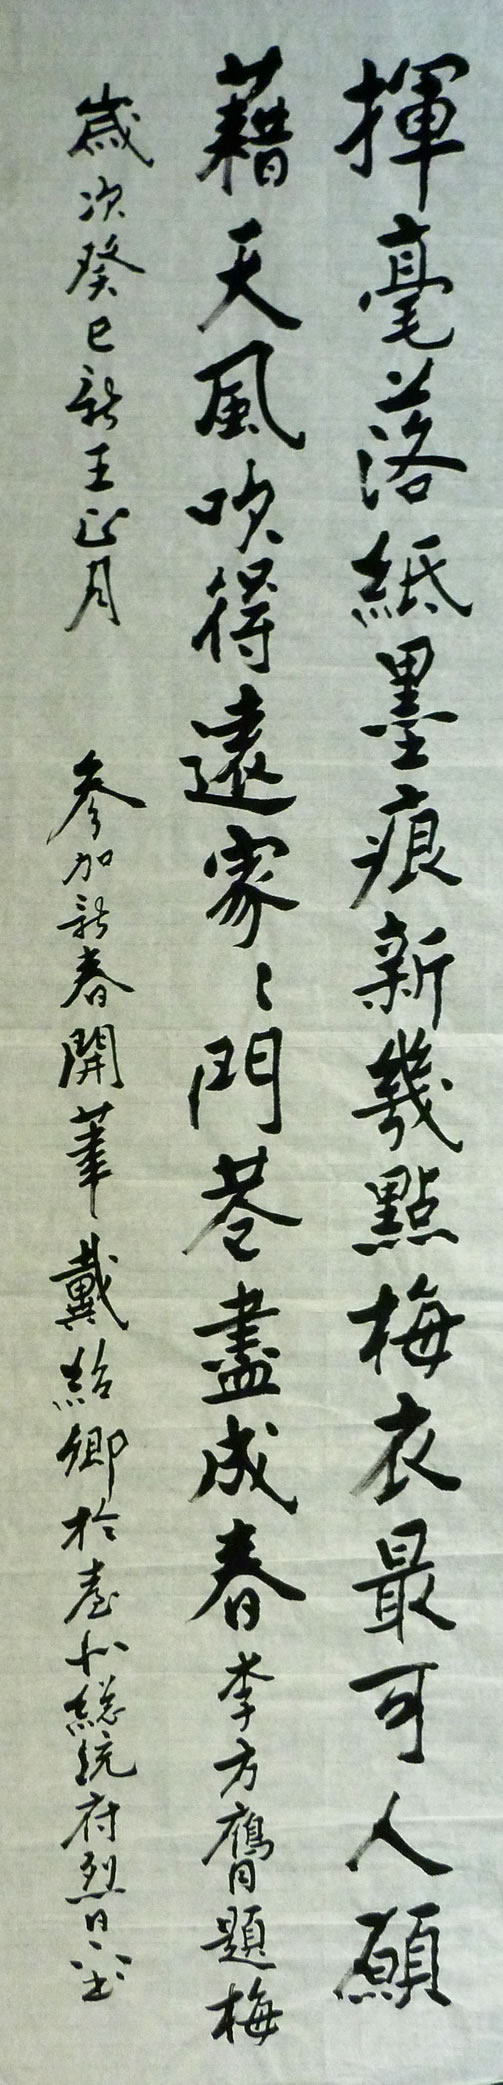 揮毫落紙墨痕新幾點梅衣最可人願
藉天風吹得遠家〻門巷盡成春李方膺題梅
歲次癸巳新王正月 參加新春開筆戴紹卿於臺北總統府烈日下書